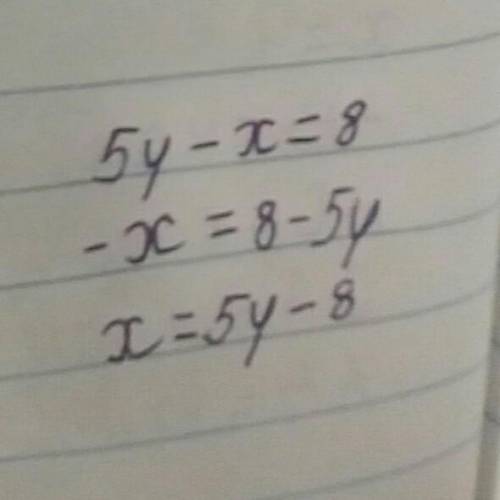 5y - x = 8
- x = 8 - 5y
x = 5y - 8